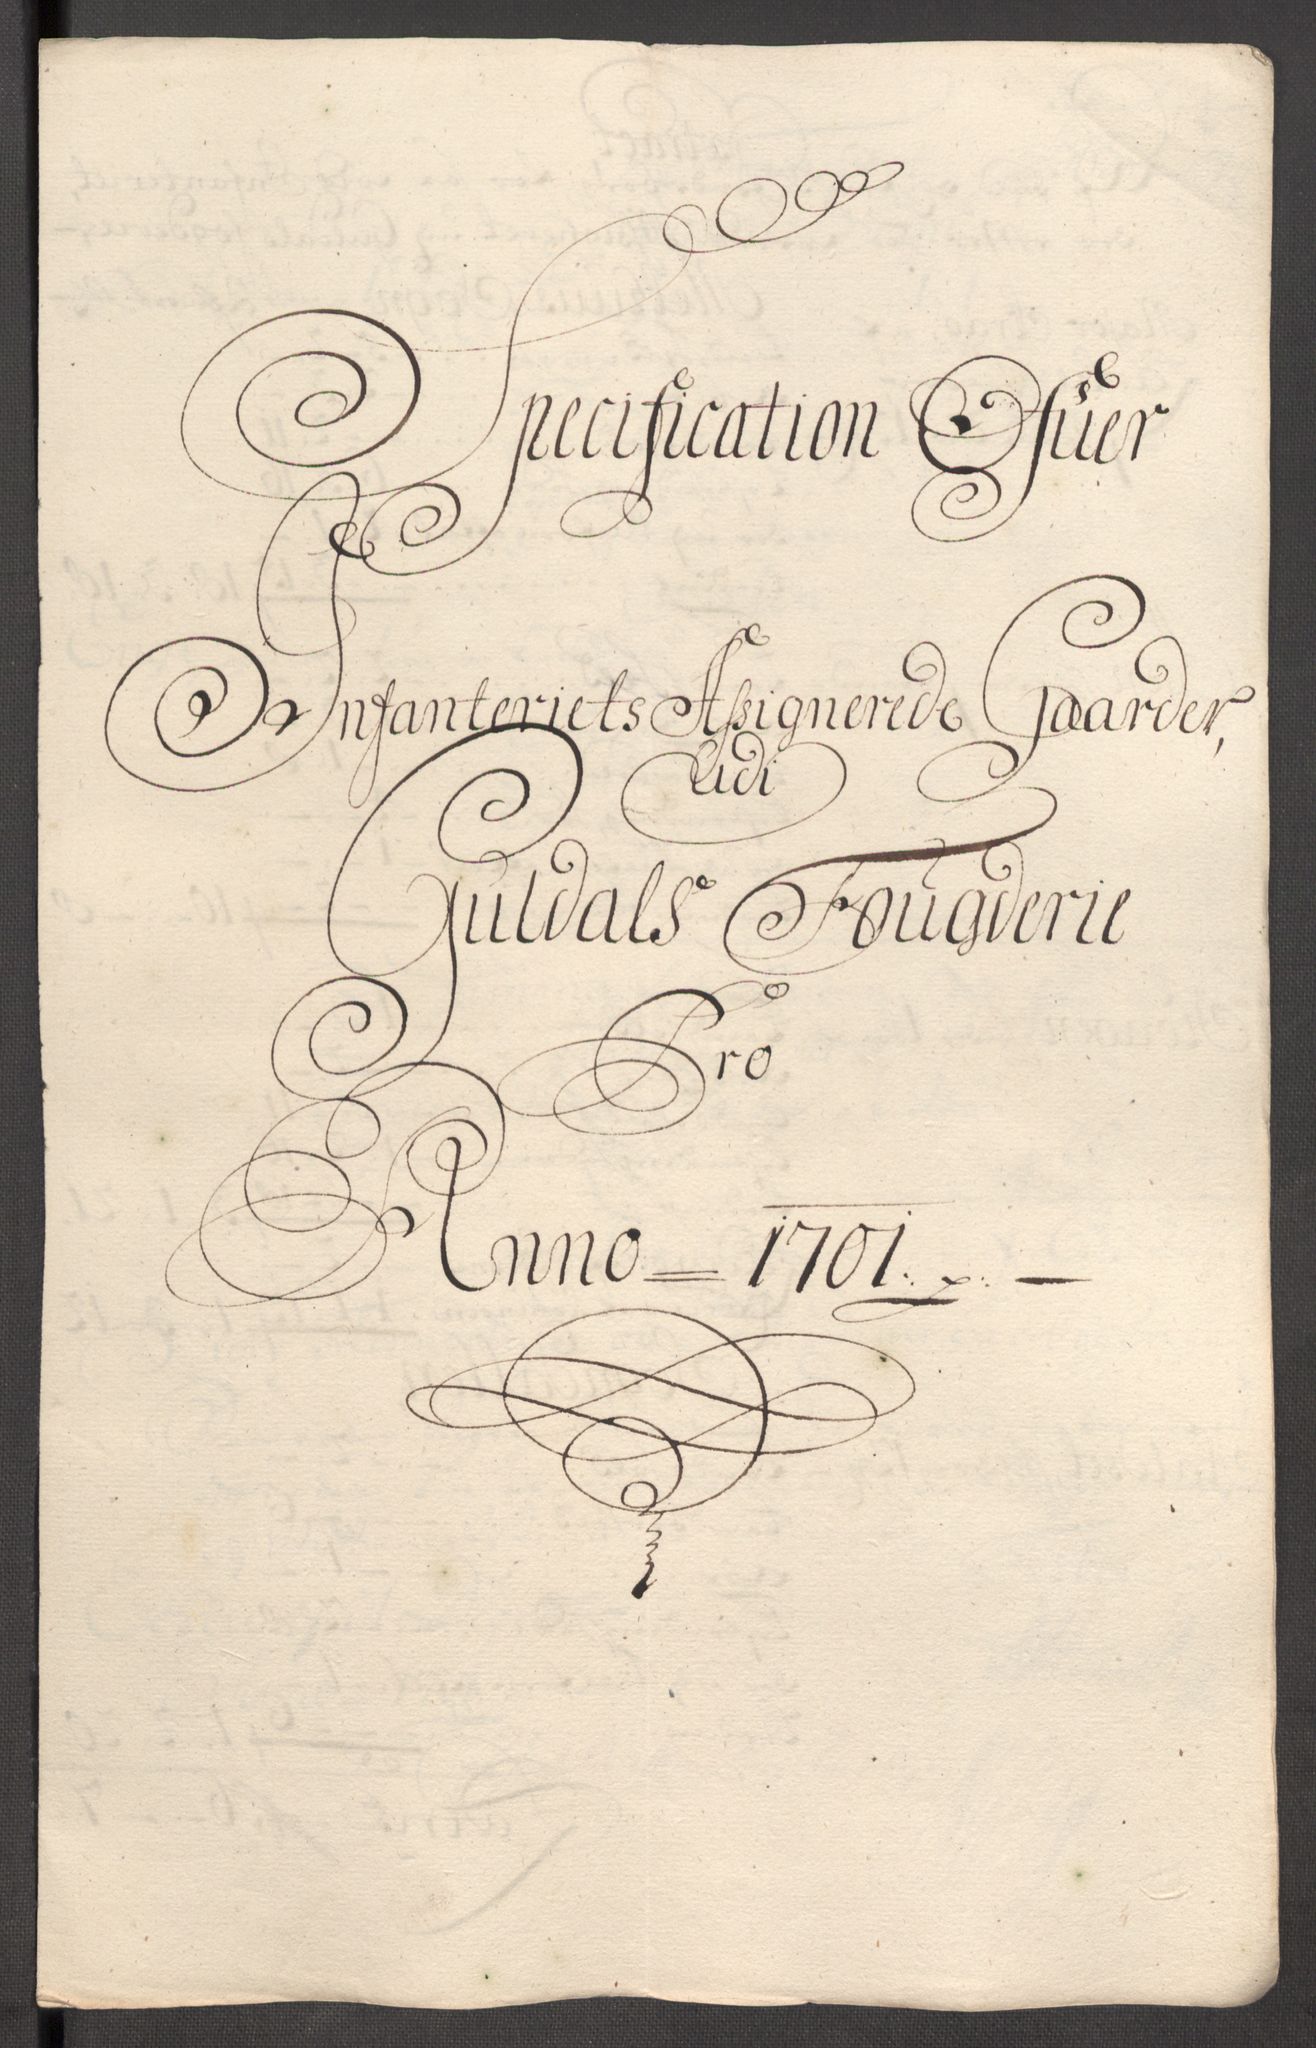 Specification Ofuer
Infanteriets Assignerede Gaarder,
udi
Guldals Fougderie
Pro
Anno = 1701